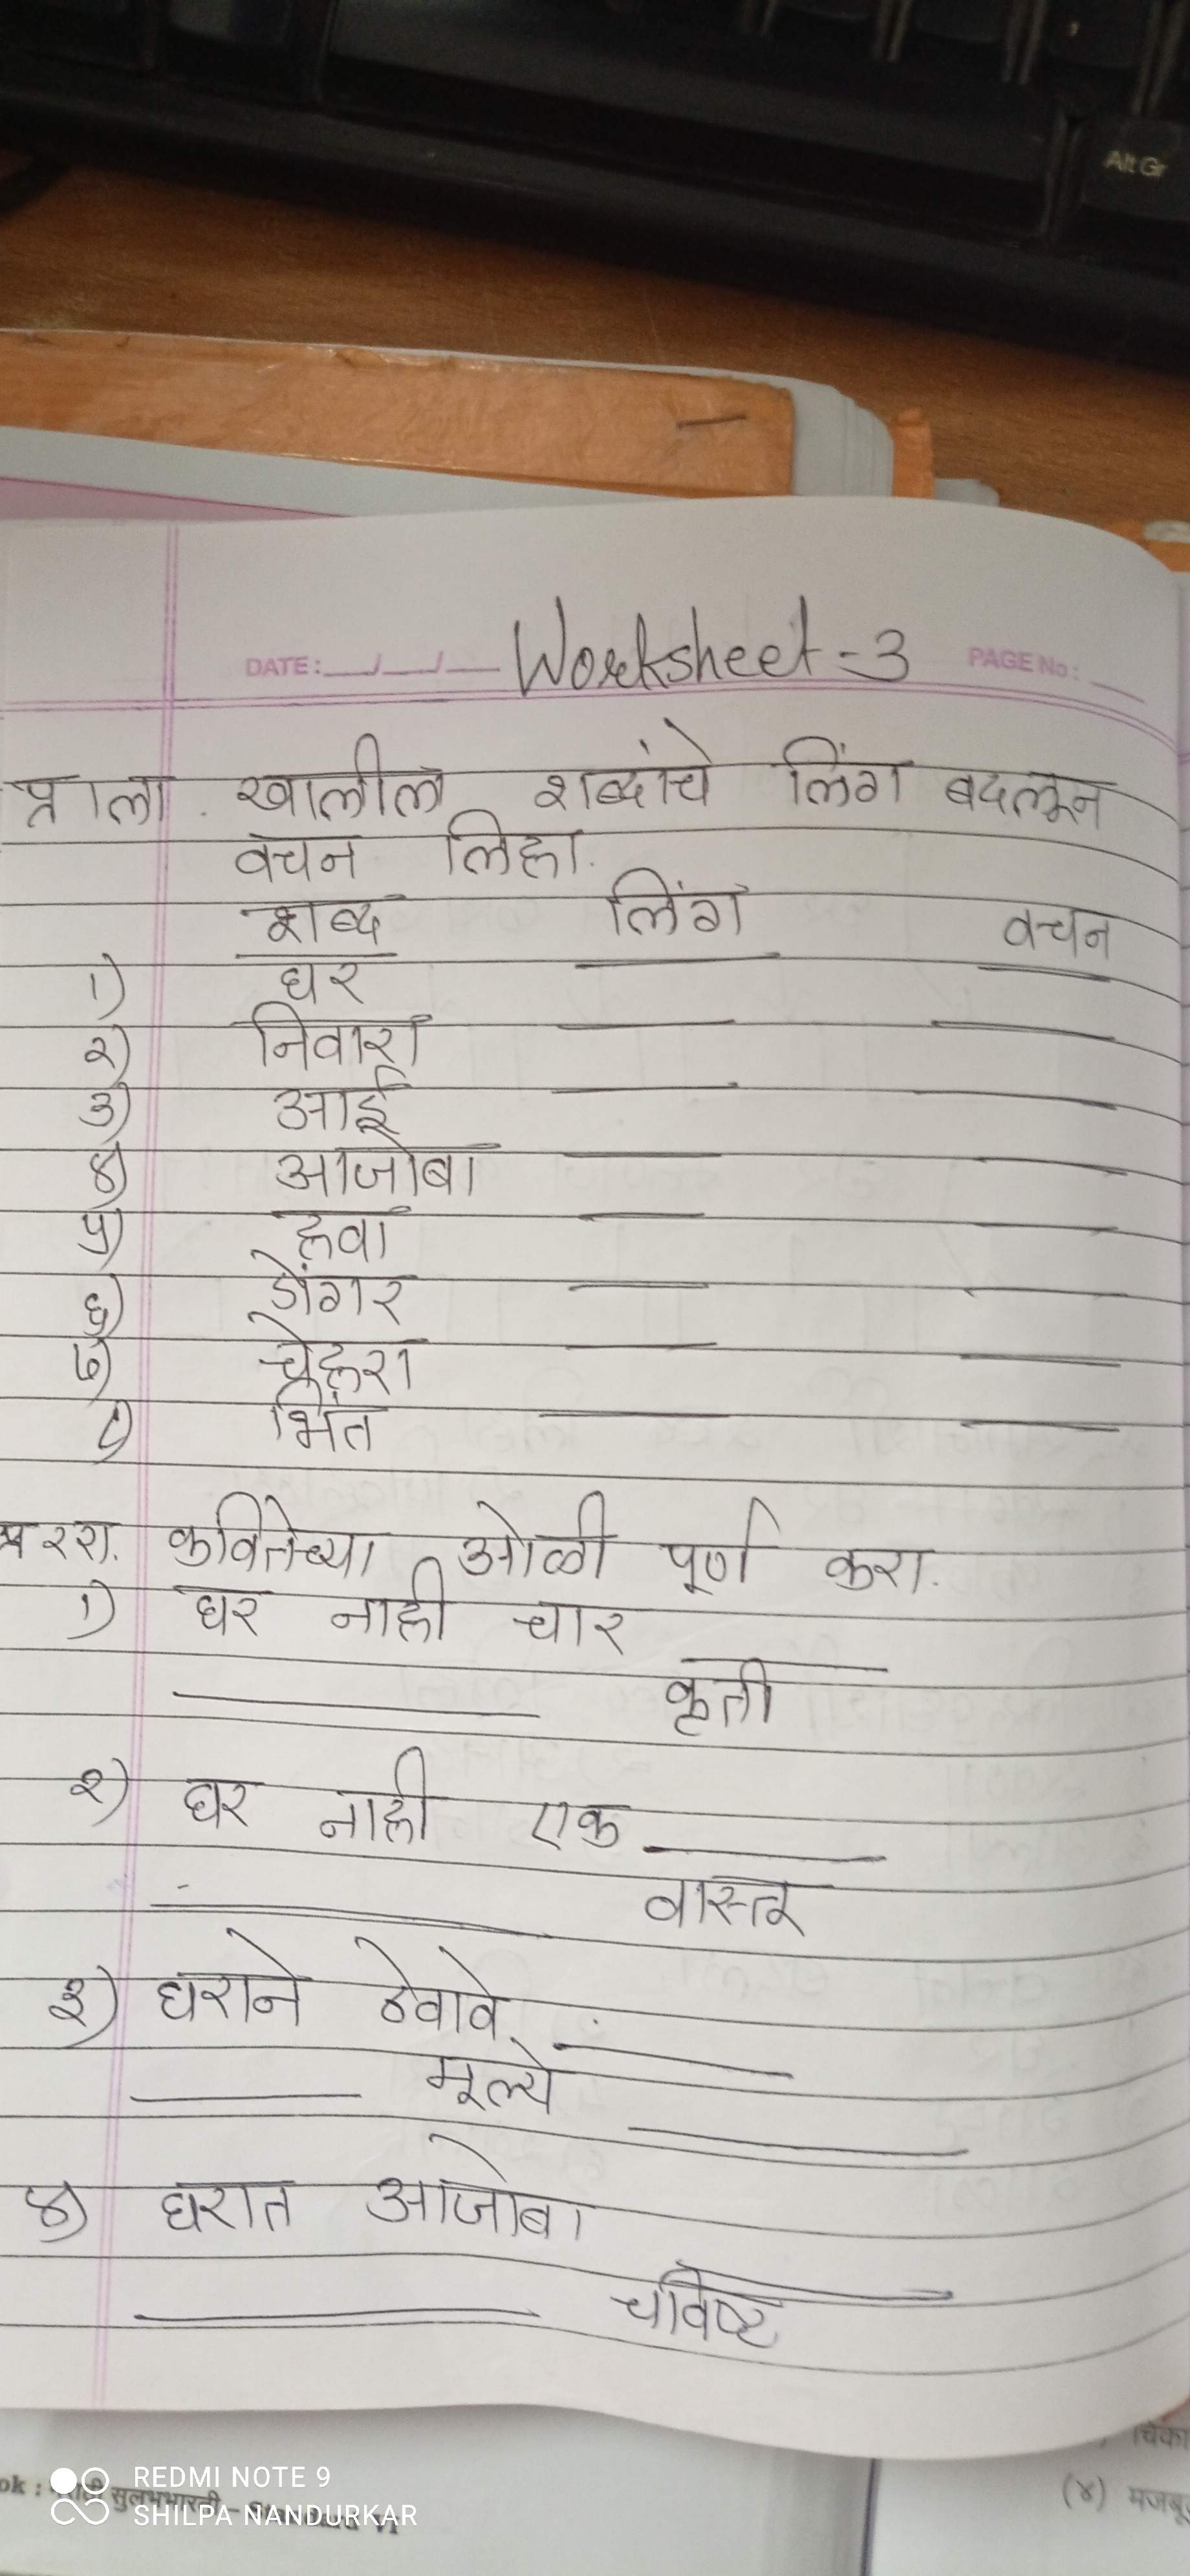 Alt Gr
DATE: __/__/__ Worksheet - 3 PAGE No: __
प्र १ ला . खालील शब्दांचे लिंग बदलून
वचन लिहा.
शब्द लिंग वचन
१) घर
२) निवारा
३) आई
४) आजोबा
५) हवा
६) डोंगर
७) चेहरा
८) भिंत
प्र २ रा. कवितेच्या ओळी पूर्ण करा.
१) घर नाही चार ____
____ कृती
२) घर नाही एक ____
____ वास्तू
३) घराने ठेवावे ____
____ मूल्ये ____
४) घरात आजोबा ____
____ चविष्ट
(४) मजबू
सुलभभारती
REDMI NOTE 9
SHILPA NANDURKAR